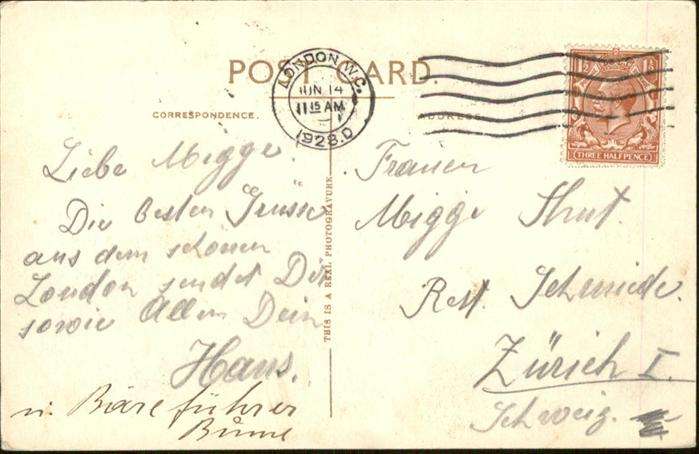 POST CARD.
LONDON. W.C.
JUN 14
11 15 AM
1928.D
CORRESPONDENCE.
ADDRESS
1½ 1½
THREE HALFPENCE
THIS IS A REAL PHOTOGRAVURE.
Liebe Migge.
Die besten Grüsse
aus dem schönen
London sendet Dir
sowie Allen Dein
Hans.
u. Bäreführer
Frauen
Migge
Rest. Schmiede.
Zürich I.
Schweiz.